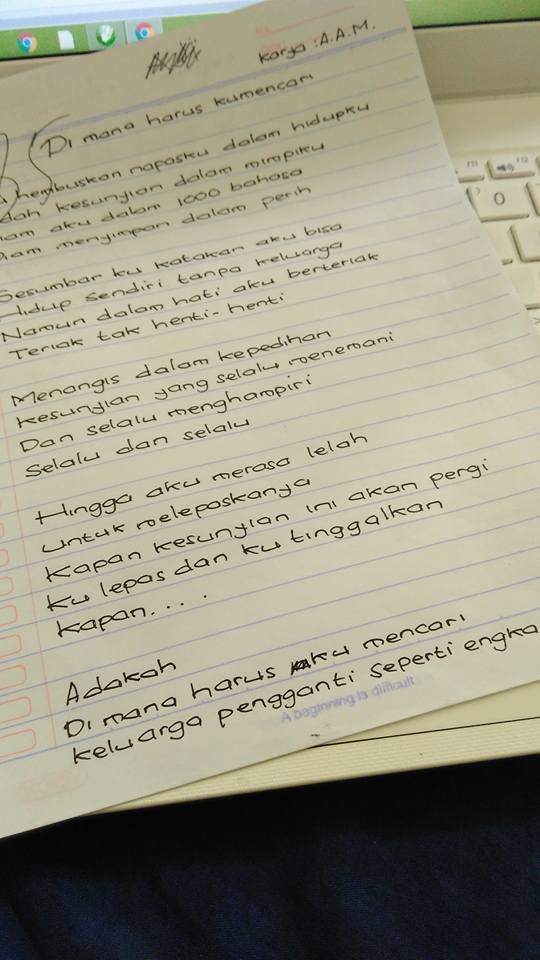 Karya : A.A.M.
Di mana harus kumencari
hembuskan napasku dalam hidupku
kesunyian dalam mimpiku
aku dalam 1000 bahasa
Diam menyimpan dalam perih
Sesumbar ku katakan aku bisa
Hidup sendiri tanpa keluarga
Namun dalam hati aku berteriak
Teriak tak henti-henti
Menangis dalam kepedihan
Kesunyian yang selalu menemani
Dan selalu menghampiri
Selalu dan selalu
Hingga aku merasa lelah
untuk melepaskanya
Kapan kesunyian ini akan pergi
Ku lepas dan ku tinggalkan
Kapan....
Adakah
Di mana harus ku mencari
keluarga pengganti seperti engka
A beginning is difficult